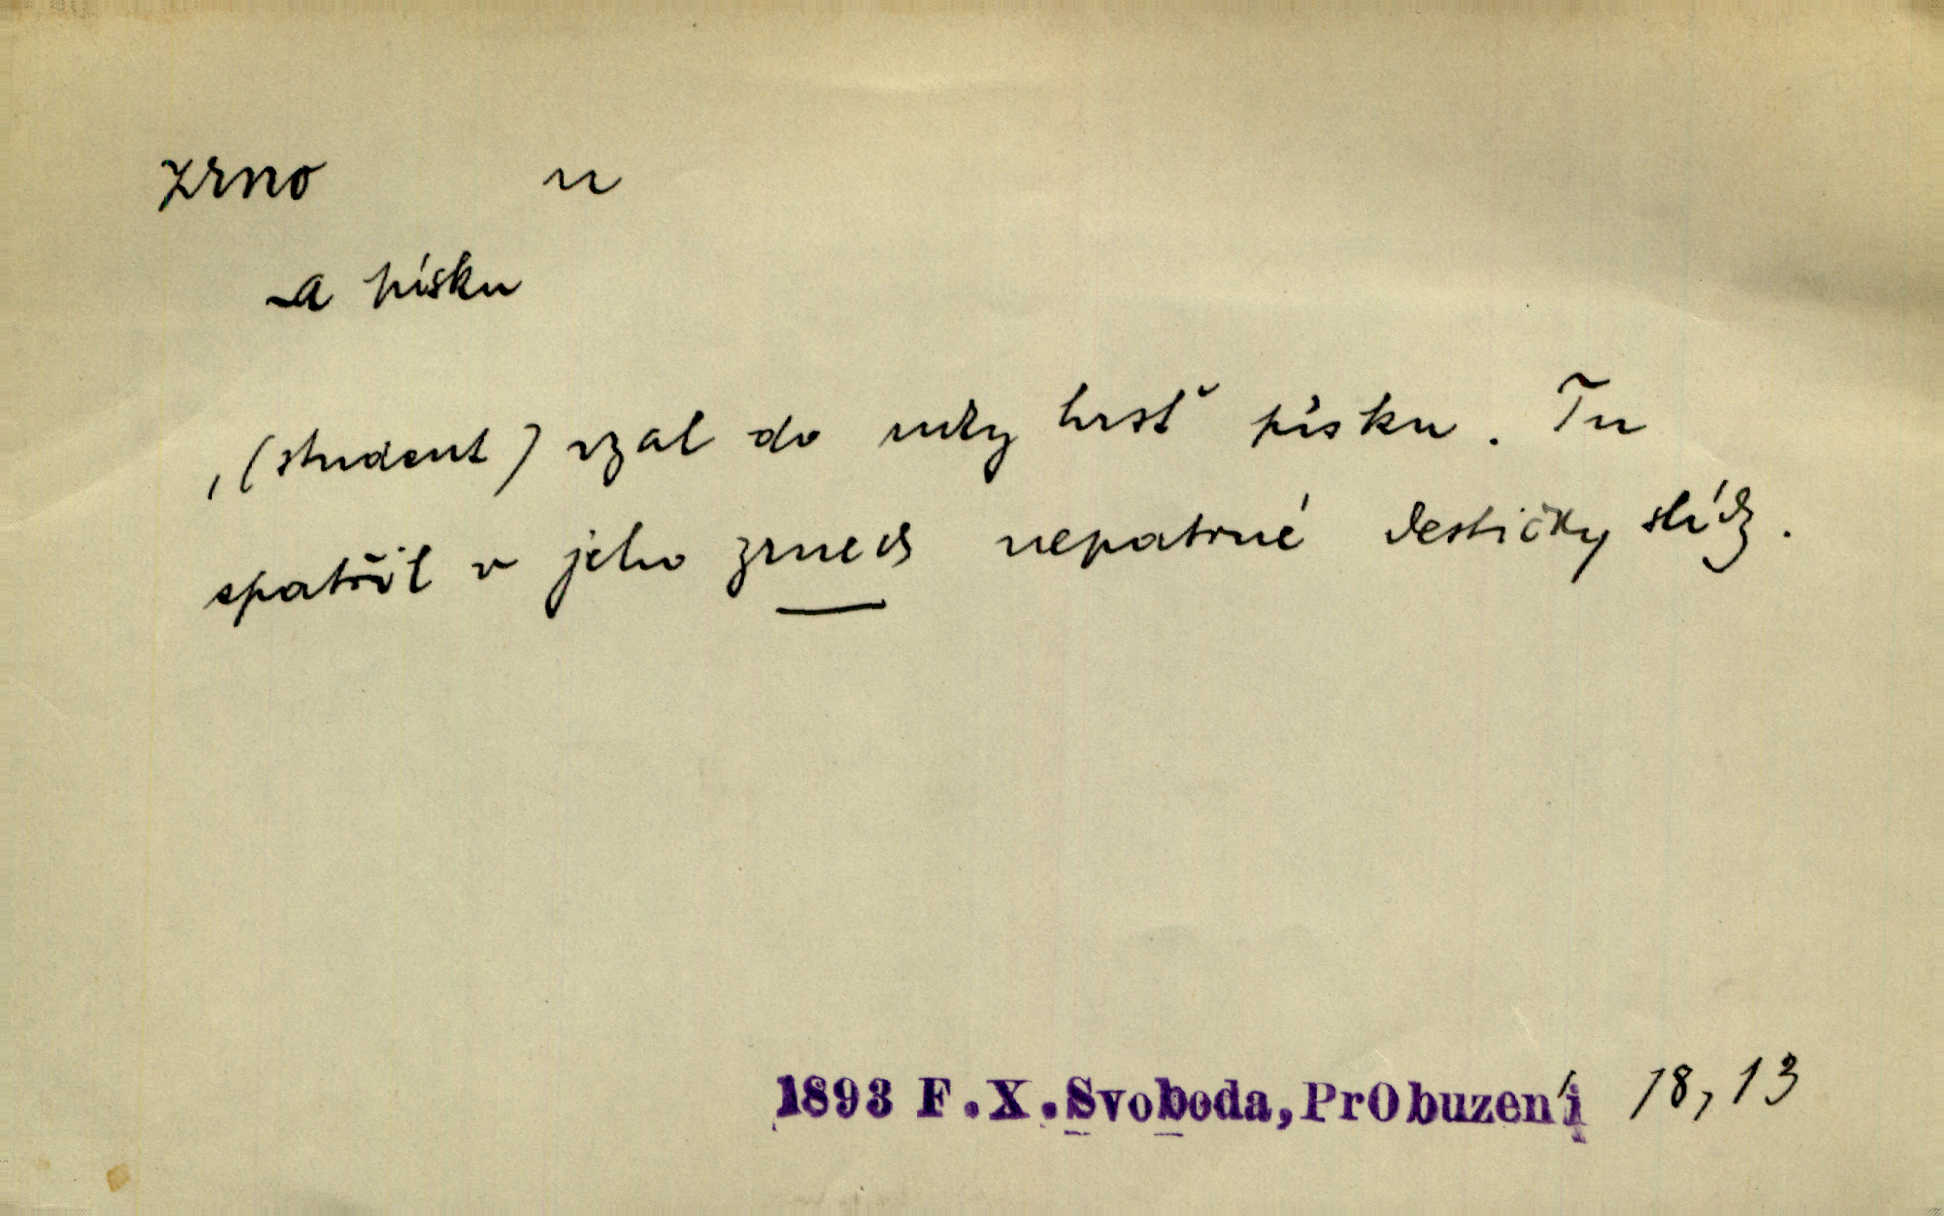 zrno n
-a písku
, (student) vzal do ruky hrsť písku. Tu
spatřil v jeho zrnech nepatrné destičky slídy.
1893 F.X.Svoboda, PrObuzení 18,13